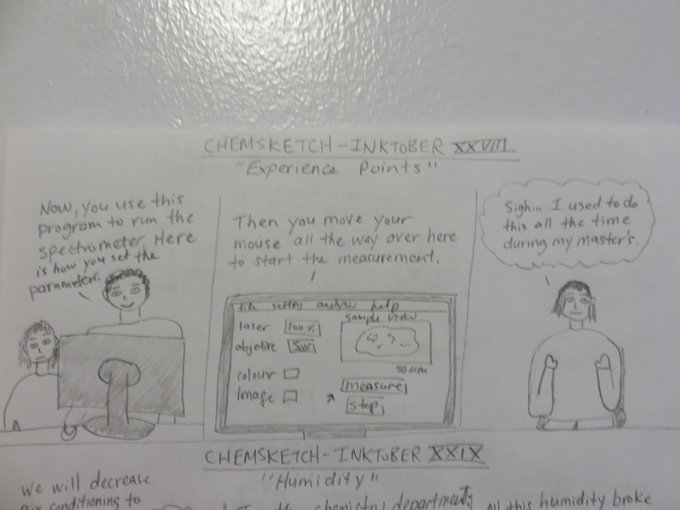 CHEMSKETCH-INKTOBER XXVIII
"Experience Points"
Now, you use this
program to run the
spectrometer. Here
is how you set the
parameters.
Then you move your
mouse all the way over here
to start the measurement.
file setting analyse help
laser 100% sample view
objetive 50x
50 µm
colour measure
Image stop
Sigh... I used to do
this all the time
during my master's.
CHEMSKETCH-INKTOBER XXIX
"Humidity"
We will decrease
air conditioning to
the chemistry department,
All this humidity broke